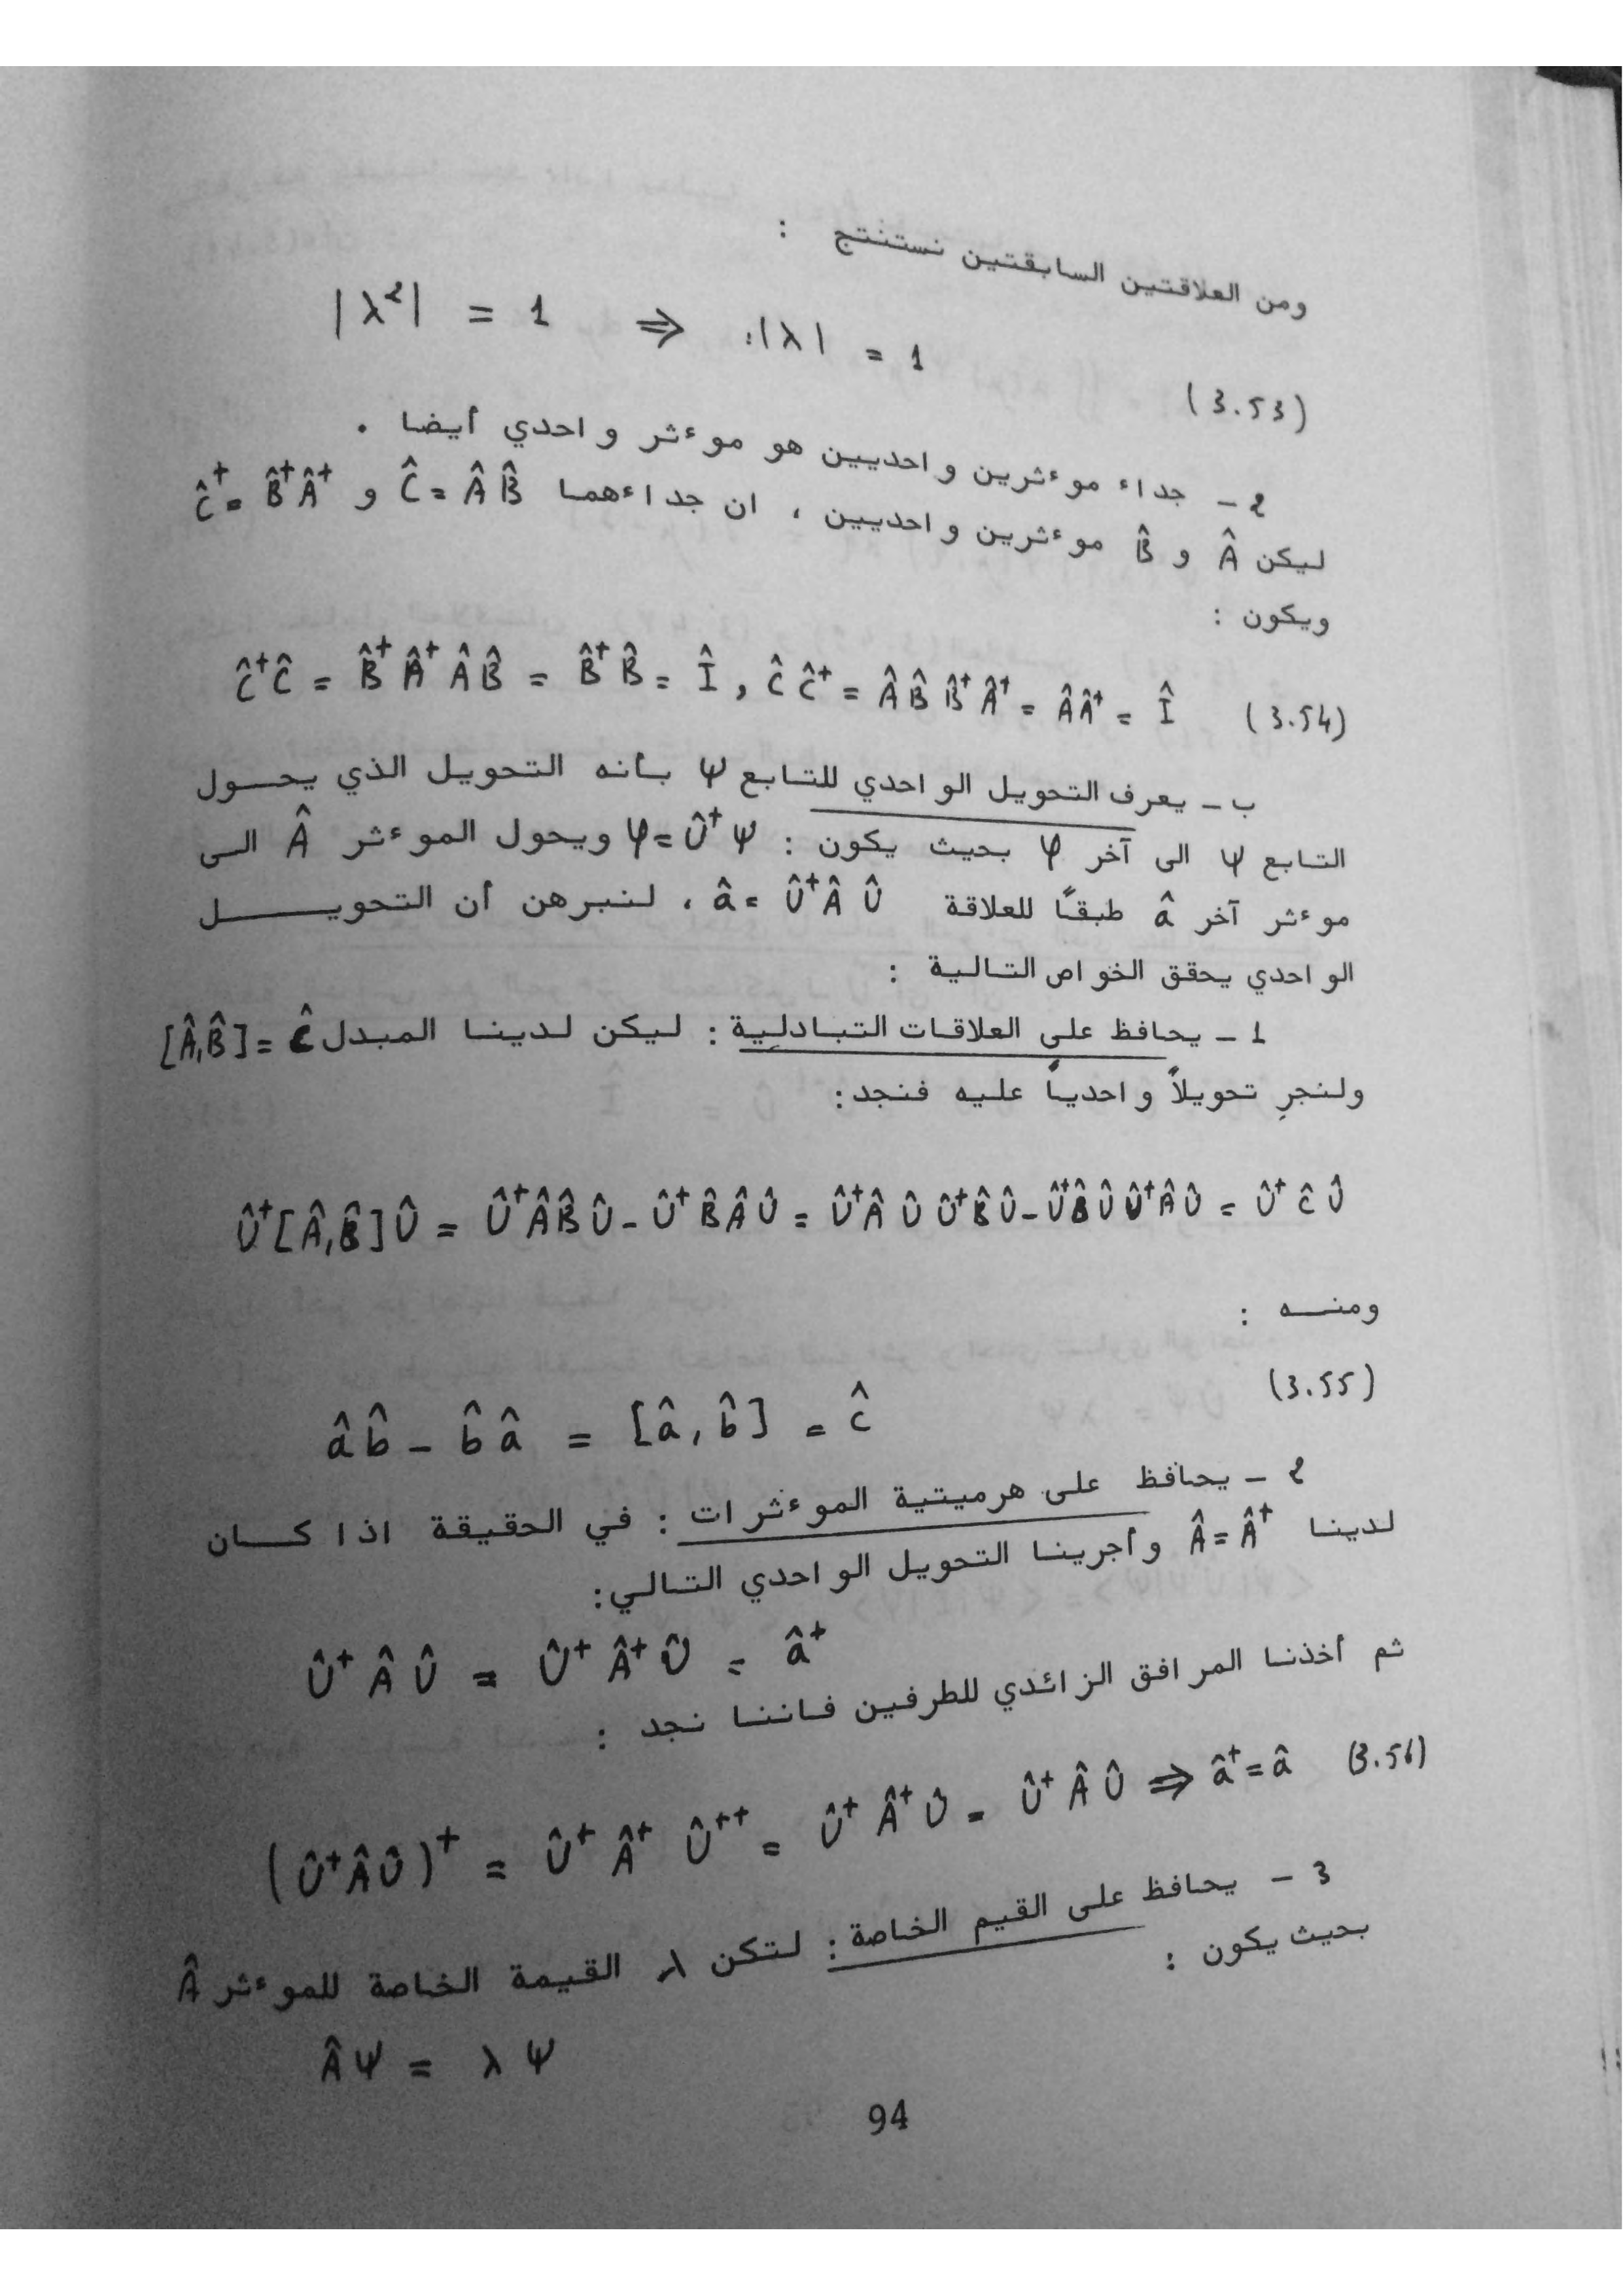 ومن العلاقتين السابقتين نستنتج :
|λ²| = 1 ⇒ |λ| = 1
(3.53)
2 - جداء موءثرين واحديين هو موءثر واحدي أيضا .
ليكن Â و B̂ موءثرين واحديين ، ان جداءهما Ĉ = Â B̂ و Ĉ⁺ = B̂⁺ Â⁺
ويكون :
Ĉ⁺Ĉ = B̂⁺ Â⁺ Â B̂ = B̂⁺ B̂ = Î , Ĉ Ĉ⁺ = Â B̂ B̂⁺ Â⁺ = Â Â⁺ = Î (3.54)
ب - يعرف التحويل الواحدي للتابع ψ بأنه التحويل الذي يحول
التابع ψ الى آخر φ بحيث يكون : φ = Û⁺ ψ ويحول الموءثر Â الى
موءثر آخر â طبقاً للعلاقة â = Û⁺ Â Û ، لنبرهن أن التحويل
الواحدي يحقق الخواص التالية :
1 - يحافظ على العلاقات التبادلية : ليكن لدينا المبدل [Â,B̂] = Ĉ
ولنجرِ تحويلاً واحدياً عليه فنجد :
Û⁺[Â,B̂]Û = Û⁺ÂB̂Û - Û⁺B̂ÂÛ = Û⁺Â Û Û⁺B̂Û - Û⁺B̂ÛÛ⁺ÂÛ = Û⁺ĈÛ
ومنه :
(3.55)
âb̂ - b̂â = [â,b̂] = ĉ
2 - يحافظ على هرميتية الموءثرات : في الحقيقة اذا كان
لدينا Â = Â⁺ وأجرينا التحويل الواحدي التالي :
Û⁺ Â Û = Û⁺ Â⁺ Û = â⁺
ثم أخذنا المرافق الزائدي للطرفين فاننا نجد :
(Û⁺ÂÛ)⁺ = Û⁺ Â⁺ Û⁺⁺ = Û⁺ Â⁺ Û = Û⁺ Â Û ⇒ â⁺ = â (3.56)
3 - يحافظ على القيم الخاصة : لتكن λ القيمة الخاصة للموءثر Â
بحيث يكون :
Âψ = λ ψ
94